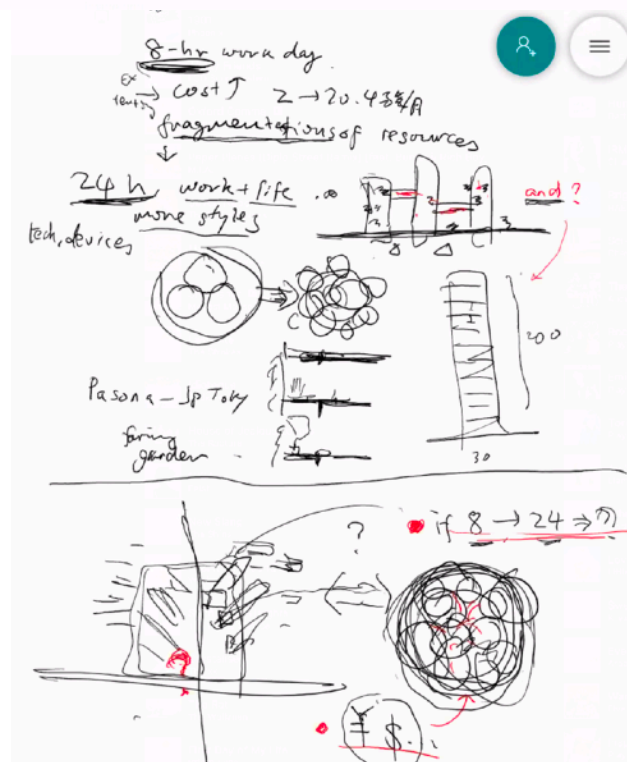 8-hr work day
cost↑ 2→20.4
fragmentations of resources
24h work + life ...
more styles
and?
tech, devices
200
Pasona - Jp Toky
garden
30
? if 8 → 24 ⇒
¥ $